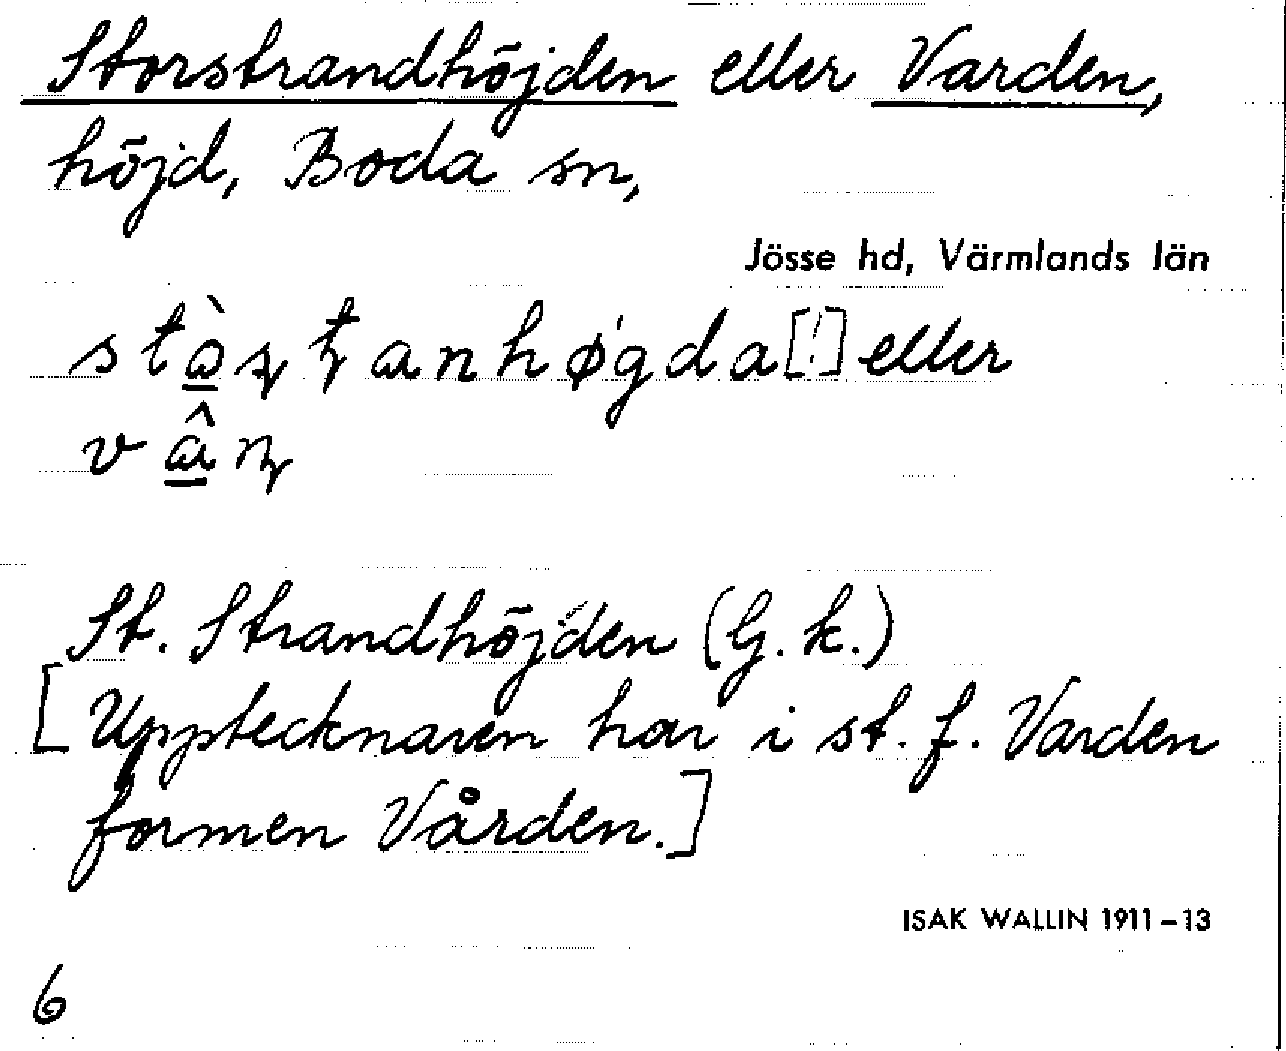 Storstrandhöjden eller Varden,
höjd, Boda sn,
Jösse hd, Värmlands län
eller
St. Strandhöjden (G. k.)
[Upptecknaren har i st. f. Varden
formen Vården.]
ISAK WALLIN 1911–13
6